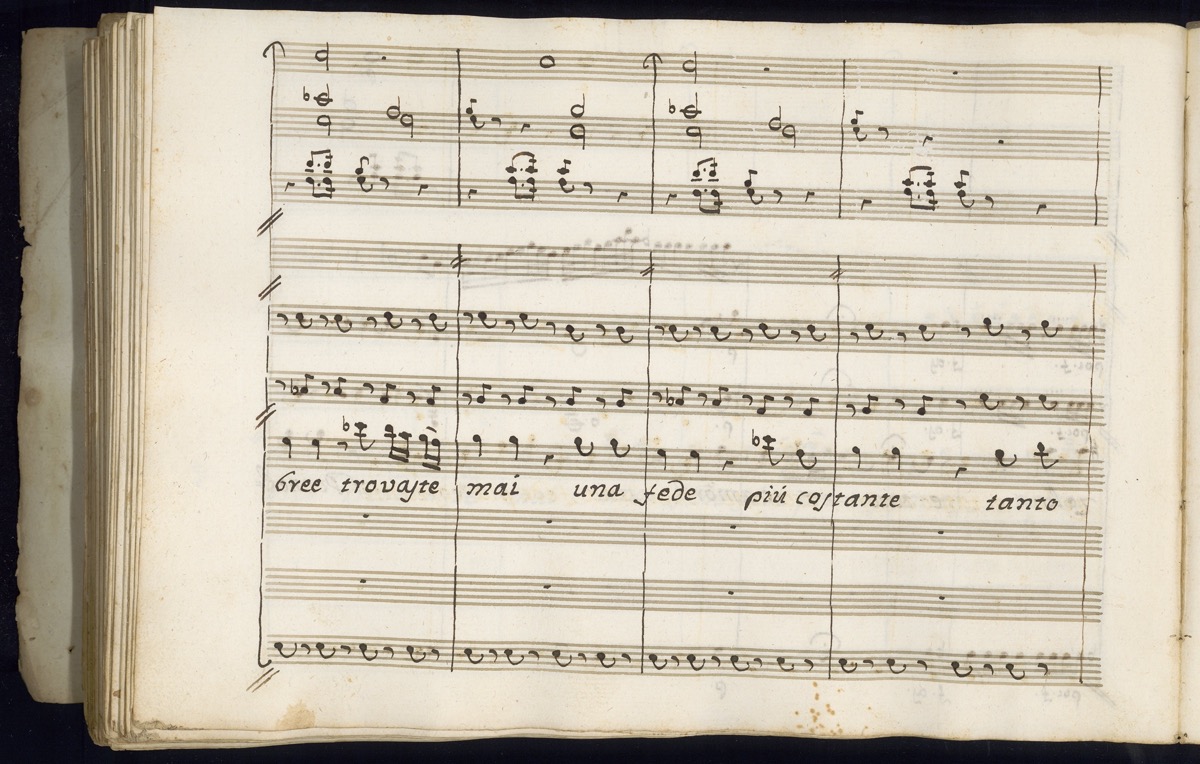 bree trovayte mai una fede più costante tanto